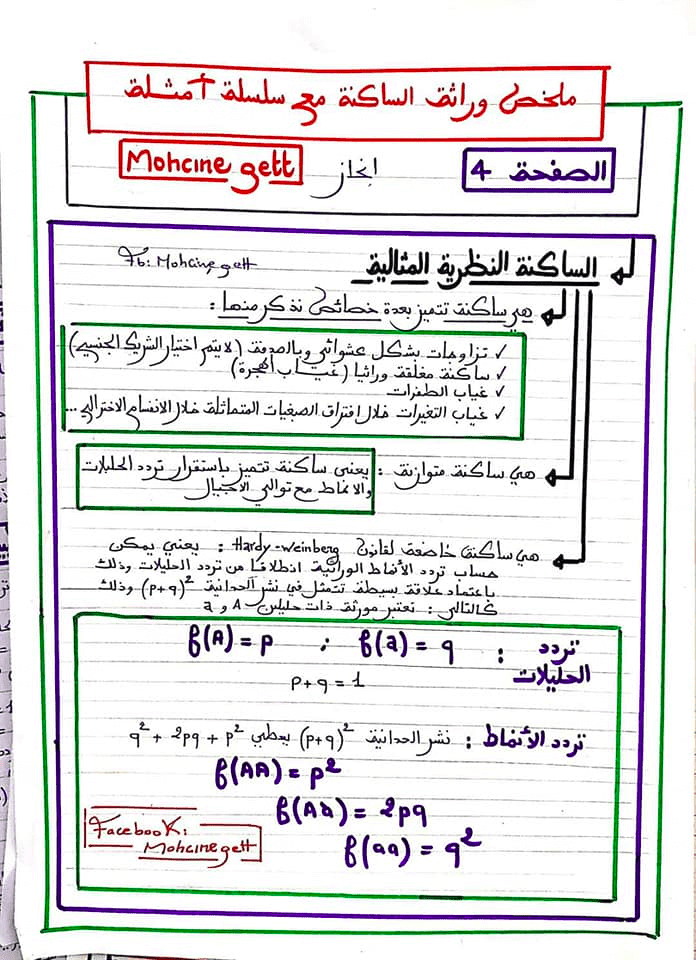 ملخص وراثة الساكنة مع سلسلة أمثلة
الصفحة 4 إنجاز Mohcine gett
الساكنة النظرية المثالية Fb: Mohcine gett
هي ساكنة تتميز بعدة خصائص نذكر منها:
✓ تزاوجات بشكل عشوائي وبالصدفة (لا يتم اختيار الشريك الجنسي)
✓ ساكنة مغلقة وراثيا (غياب الهجرة)
✓ غياب الطفرات
✓ غياب التغيرات خلال افتراق الصبغيات المتماثلة خلال الانقسام الاختزالي ...
هي ساكنة متوازنة : يعني ساكنة تتميز باستقرار تردد الحليلات
والانماط مع توالي الأجيال
هي ساكنة خاضعة لقانون Hardy-Weinberg : يعني يمكن
حساب تردد الأنماط الوراثية انطلاقا من تردد الحليلات وذلك
باعتماد علاقة بسيطة تتمثل في نشر الحدانية (p+q)² وذلك
كالتالي : نعتبر مورثة ذات حليلين A و a
تردد الحليلات : f(A) = p ; f(a) = q
p+q=1
تردد الأنماط : نشر الحدانية (p+q)² يعطي q² + 2pq + p²
f(AA) = p²
f(Aa) = 2pq
f(aa) = q²
Facebook:
Mohcine gett